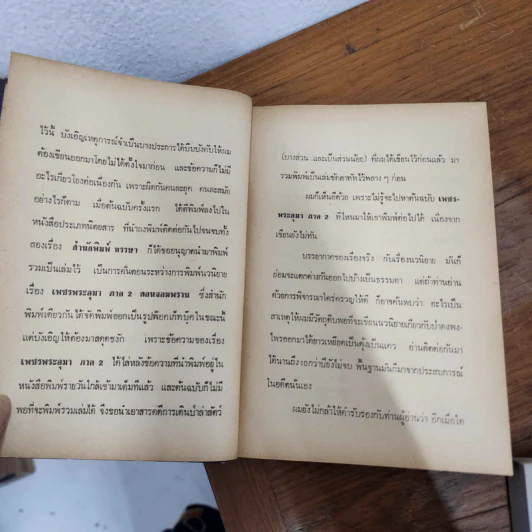 ไว้นี้ บังเอิญเหตุการณ์จำเป็นบางประการได้บีบบังคับให้ผม
ต้องเขียนออกมาโดยไม่ได้ตั้งใจมาก่อน และข้อความก็ไม่มี
อะไรเกี่ยวโยงต่อเนื่องกัน เพราะผิดกันคนละยุค คนละสมัย
อย่างไรก็ตาม เมื่อต้นฉบับครั้งแรก ได้ตีพิมพ์ลงไปใน
หนังสือประเภทนิตยสาร ที่นำลงพิมพ์ติดต่อกันไปจนจบทั้ง
สองเรื่อง สำนักพิมพ์ บรรษา ก็ได้ขออนุญาตนำมาพิมพ์
รวมเป็นเล่มไว้ เป็นการคั่นตอนระหว่างการพิมพ์นวนิยาย
เรื่อง เพชรพระอุมา ภาค 2 ตอนจอมพราน ซึ่งสำนัก
พิมพ์เดียวกันนี้ ได้จัดพิมพ์ออกเป็นรูปพ็อคเก็ทบุ๊คในขณะนี้
แต่บังเอิญให้ต้องมาสดุดชงัก เพราะข้อความของเรื่อง
เพชรพระอุมา ภาค 2 ได้ไล่หลังข้อความที่นำพิมพ์อยู่ใน
หนังสือพิมพ์รายวันใกล้เข้ามาเต็มทีแล้ว และต้นฉบับก็ไม่มี
พอที่จะพิมพ์รวมเล่มได้ จึงขอนำเอาสารคดีการเดินป่าล่าสัตว์
(บางส่วน และเป็นส่วนน้อย) ที่ผมได้เขียนไว้ก่อนแล้ว มา
รวมพิมพ์เป็นเล่มขัดตาทัพไว้พลาง ๆ ก่อน
ผมก็เห็นดีด้วย เพราะไม่รู้จะไปหาต้นฉบับ เพชร-
พระอุมา ภาค 2 ที่ไหนมาให้เขาพิมพ์ต่อไปได้ เนื่องจาก
เขียนยังไม่ทัน
บรรยากาศของเรื่องจริง กับเรื่องนวนิยาย มันก็
ย่อมจะแตกต่างกันออกไปบ้างเป็นธรรมดา แต่ถ้าท่านอ่าน
ด้วยการพิจารณาใคร่ครวญให้ดี ก็อาจค้นพบว่า อะไรเป็น
สาเหตุให้ผมมีวัตถุดิบพอที่จะเขียนนวนิยายเกี่ยวกับป่าดงพง-
ไพรออกมาได้ยาวเหยียดเป็นคุ้งเป็นแคว อ่านติดต่อกันมา
ได้นานถึง 10 กว่าปียังไม่จบ พื้นฐานมันก็มาจากประสบการณ์
ในอดีตนั่นเอง
ผมยังไม่กล้าให้คำรับรองกับท่านผู้อ่านว่า อีกเมื่อใด